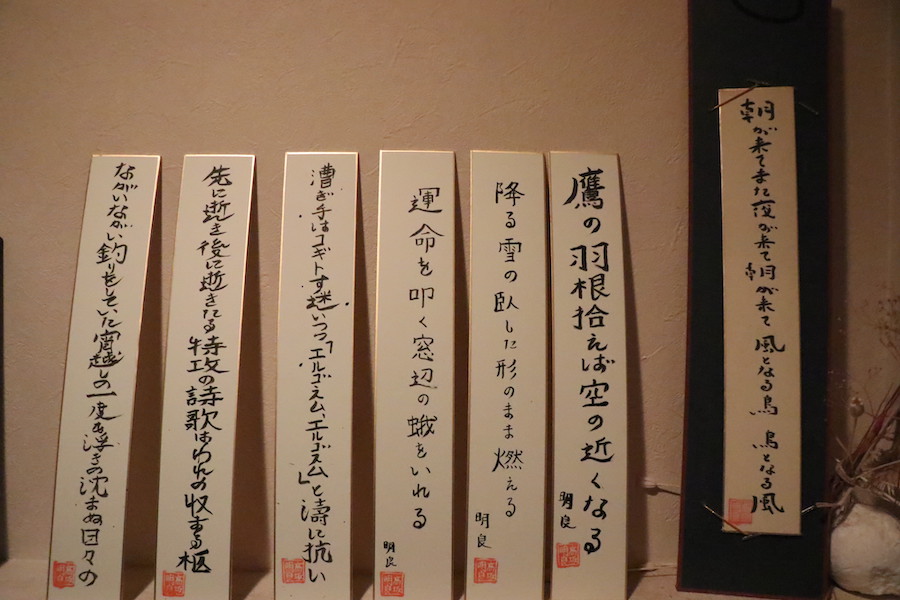 朝が来てまた夜が来て朝が来て風となる鳥 鳥となる風
鷹の羽根拾えば空の近くなる
明良
降る雪の臥した形のまま燃える
明良
運命を叩く窓辺の蛾をいれる
明良
漕ぎ手はコギトす迷いつつ「エルゴスム、エルゴスム」と濤に抗い
先に逝き後に逝きたる特攻の詩歌はわれの収する柩
ながいながい釣りをしていた宵越しの一度も浮きの沈まぬ日々の